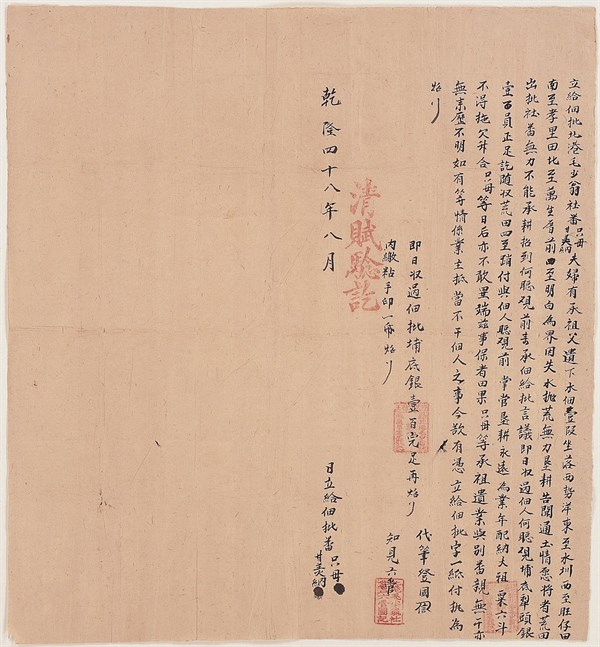 立給佃批北港毛少翁社番只毋甘美納夫婦有承祖父遺下水佃壹段坐落西勢洋東至水圳西至旺仔田
南至孝里田北至萬生厝前四至明白為界因失水拋荒無力墾耕苦闕通土情愿將者荒田
出批社番無力不能承耕招到何聰硯前去承佃給批言議即日收過佃人何聰硯埔底犁頭銀
壹百員正足訖隨收荒田四至踏付與佃人聰硯前掌管墾耕永遠為業年配納大租粟六斗
不得拖欠升合只毋等日后亦不敢異端滋事保者田果只毋等承祖遺業與別番親無干亦
無來歷不明如有等情係業主抵當不干佃人之事今欲有憑立給佃批字一紙付執為
炤
即日收過佃批埔底銀壹百完足再炤
內繳粘手印一帋炤
清賦驗訖
代筆登國
知見六
乾隆四十八年八月
日立給佃批番只毋
甘美納